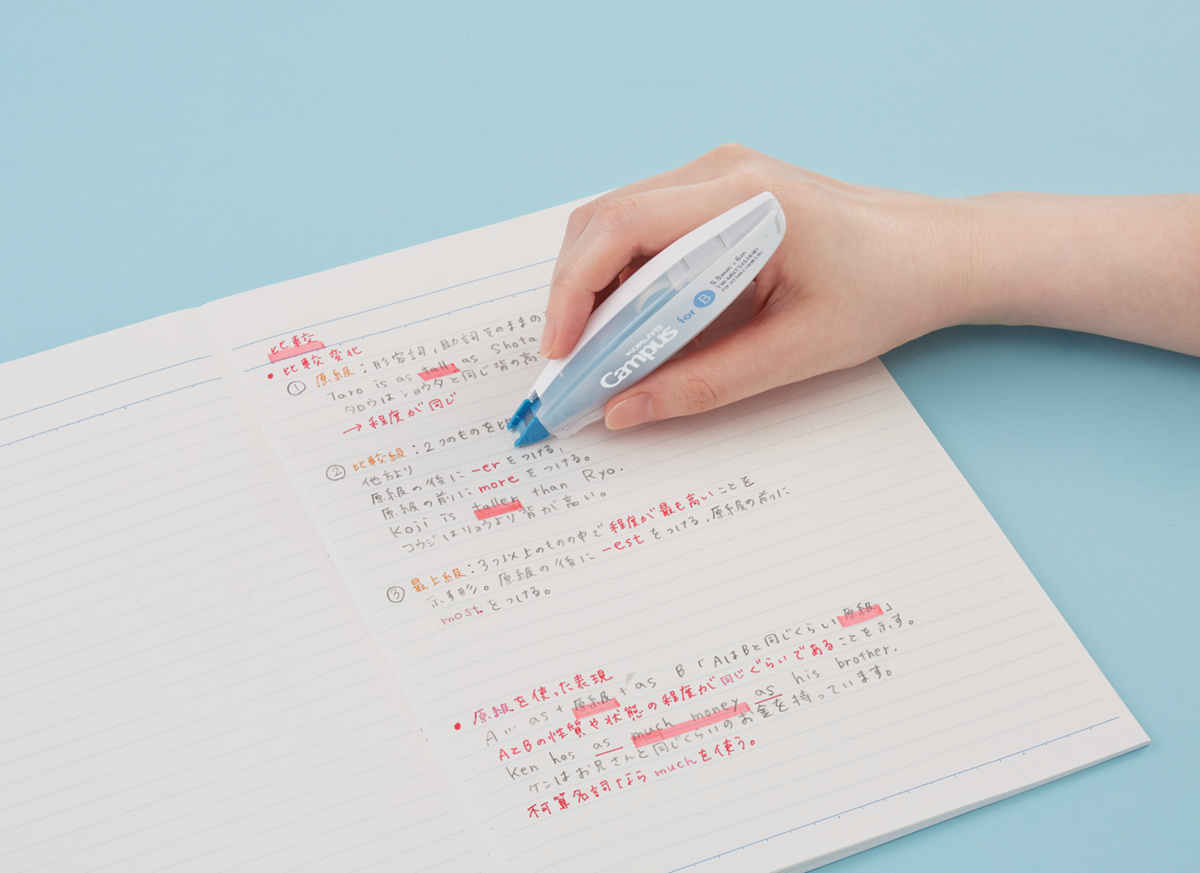 比較
• 比較変化
① 原級：形容詞，助詞そのままの
Taro is as tall as Shota
タロウはショウタと同じ背の高
→ 程度が同じ
② 比較級：2つのものを比
他方より
原級の後に -er をつける，
原級の前に more をつける。
Koji is taller than Ryo.
コウジはリョウより背が高い。
③ 最上級：3つ以上のものの中で程度が最も高いことを
示す形。原級の後に -est をつける，原級の前に
most をつける。
• 原級を使った表現
A … as + 原級 + as B 「AはBと同じくらい原級」
AとBの性質や状態の程度が同じぐらいであることを示す。
Ken has as much money as his brother.
ケンはお兄さんと同じくらいのお金を持っています。
不可算名詞なら much を使う。
KOKUYO
Campus for B
5.5mm × 6m